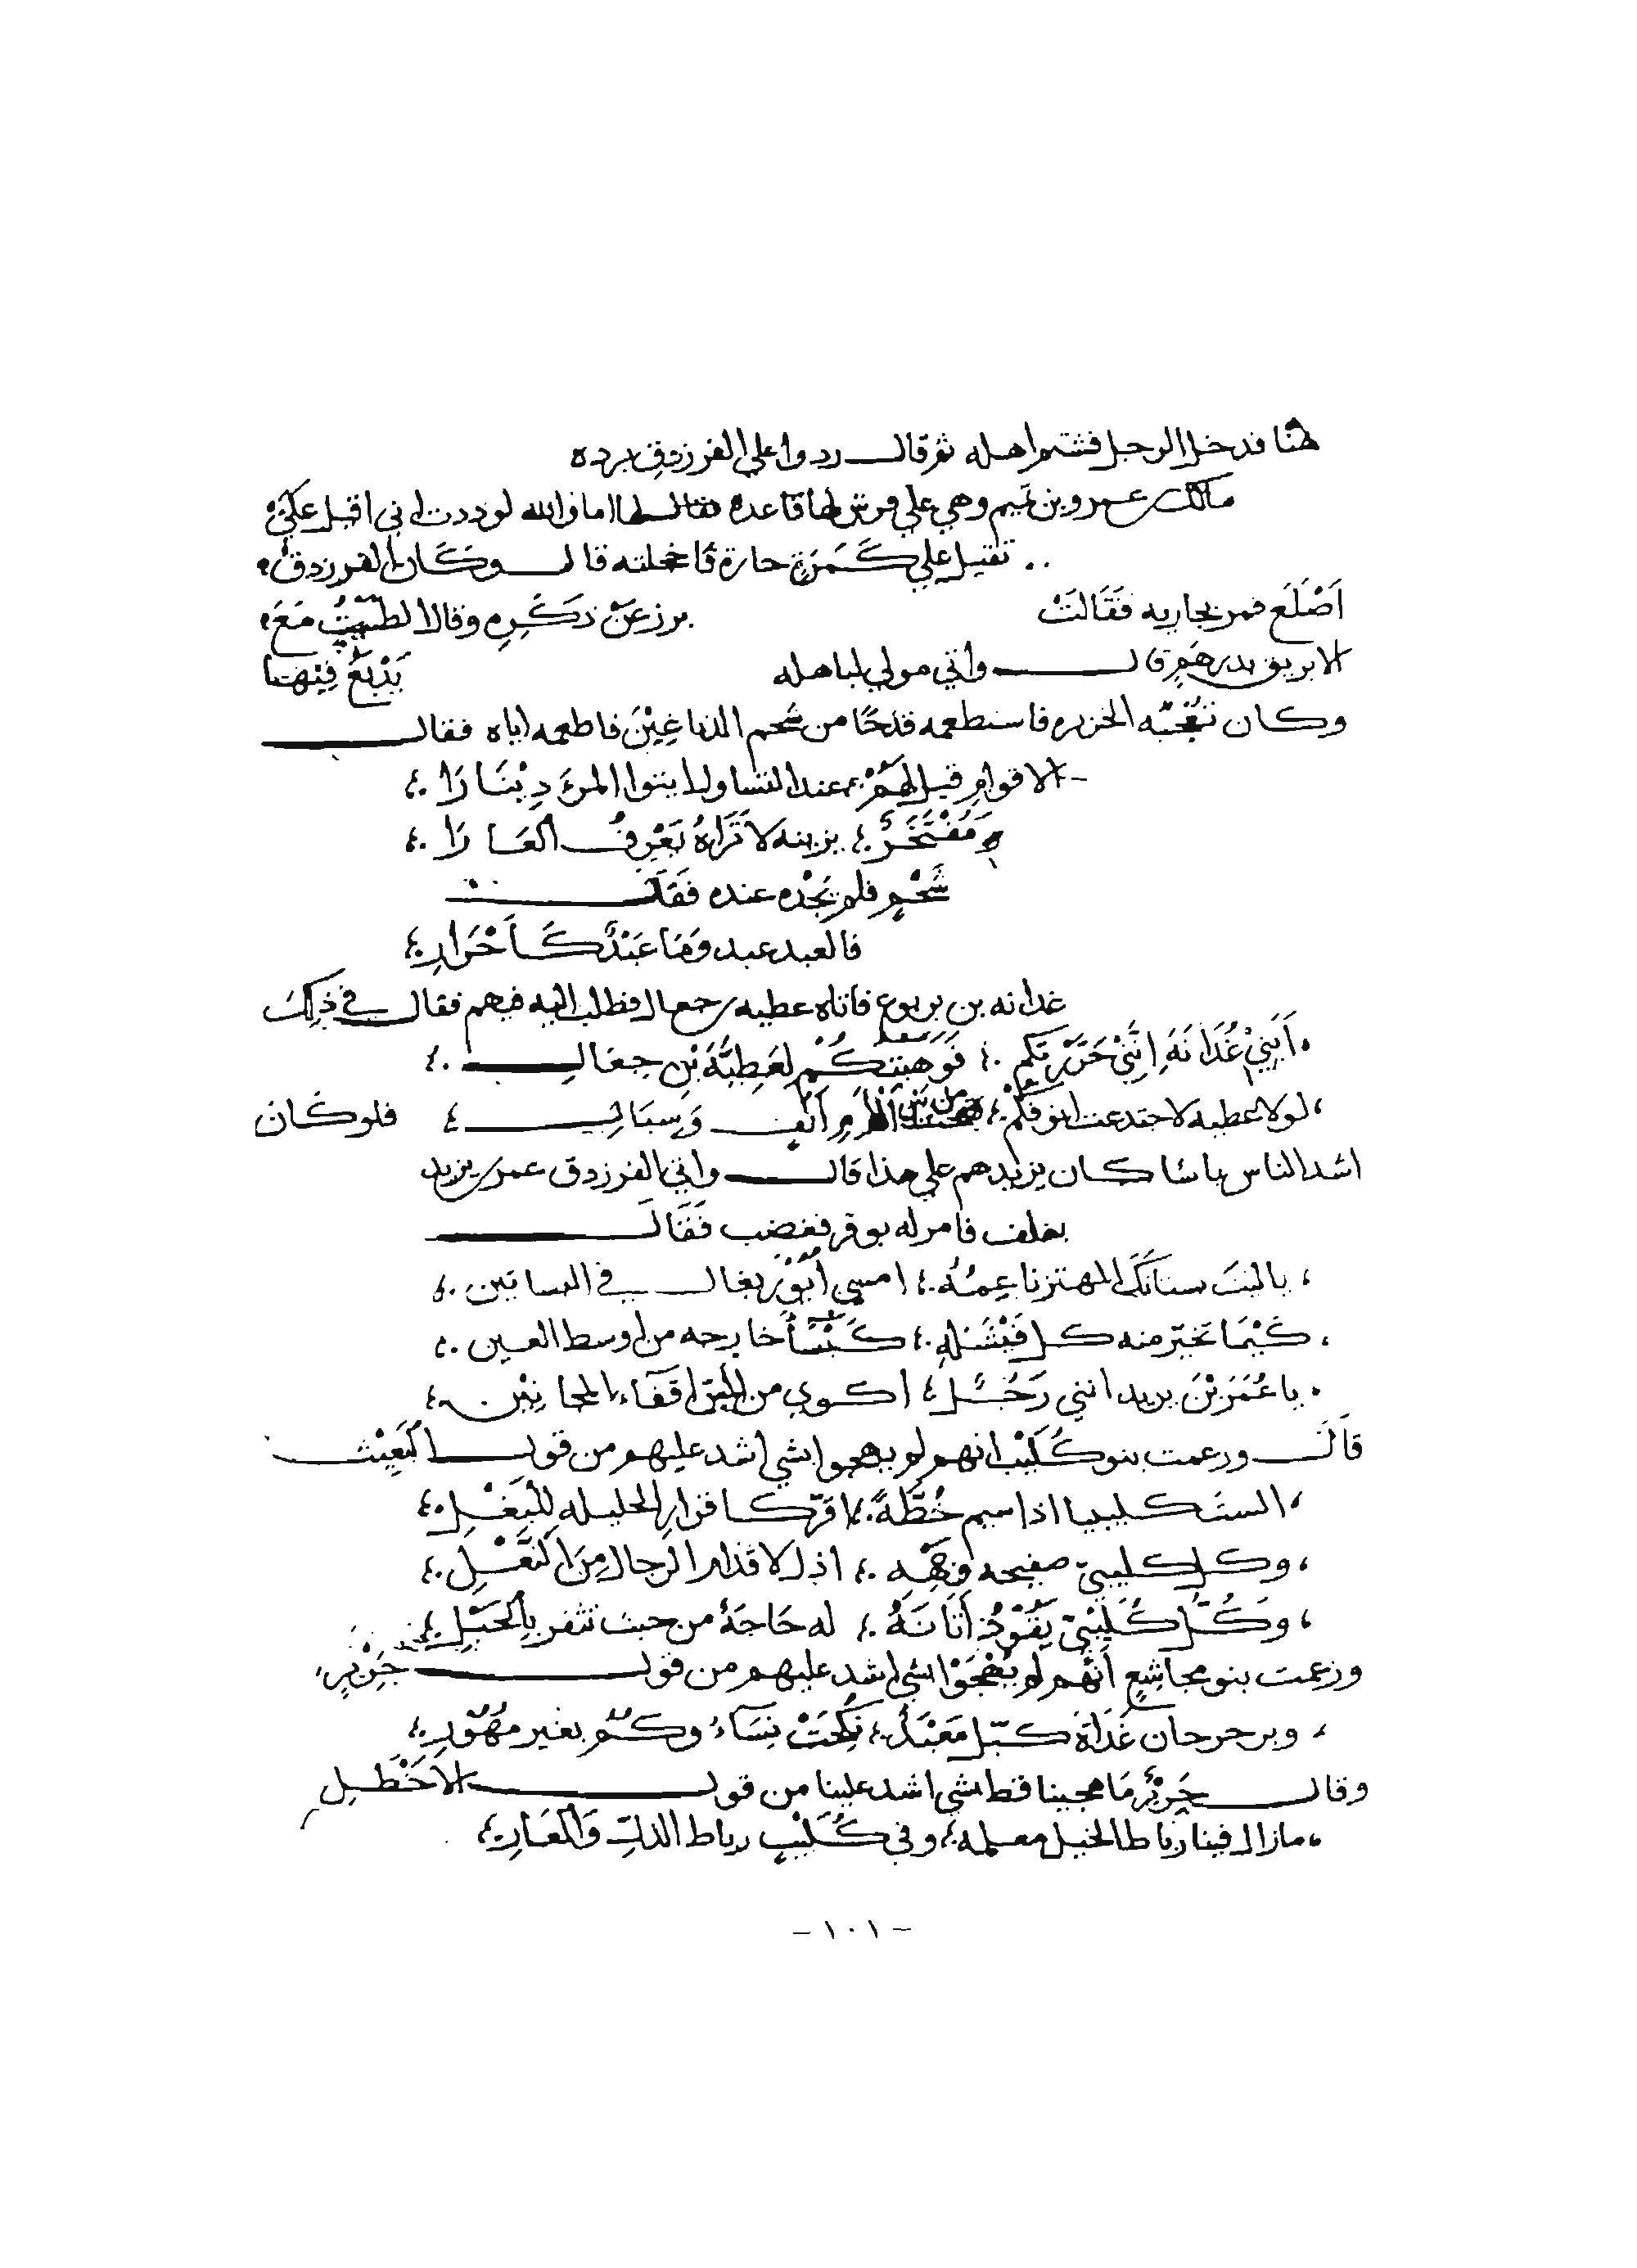 هنا فدخل الرجل فشتم اهله ثم قال ردوا علي الفرزدق برده
مالك عمرو بن تميم وهي علي فرش لها قاعده فقال لها اما والله لوددت اني اقبل عليك
تقيل علي كمرة حارة فاخجلته قال وكان الفرزدق
اَصْلَع فمر بجاريه فَقَالَتْ برز عَنْ ذكَرِهِ وقالا لطبيب مَعَ
الابريق بدرهم قال واتي مولي لباهله يَذْبَحُ فِيْهَا
وكان تعجبه الخزيره فاستطعمه قدحًا من شحم الدماغين فاطعمه اياه فقال
الاقوامِ قيل لهم عند التساول ايتوا المرءَ دِيْنَارَا
وَمُفْتَخَرٌ يزينه لا تَرَاهُ يَعْرِفُ العَارَا
شَحْمٍ فلم يَجْده عنده فَقَالَ
فالعبد عبد وَمَا عَبْدٌ كَاَحْرَارِ
غدانه بن يربوع فاتاه عطيه بن جعال فطلب اليه فيهم فقال في ذلِكَ
اَبَنِيْ غُدَانَةَ اِنَّنِيْ حَرَّرْتكم فَوَهَبْتكُمْ لعَطِيَّةَ بْنِ جِعَالِ
لولا عطيه لاجتدعت انوفكم من بين اَلأَمِ اَنْفٍ وَسِبَالِ فلو كان
اشد الناس باسًا كان يزيدهم علي هذا قال واتي الفرزدق عمر بن يزيد
بعلف فامر له بوقر فغضب فَقَالَ
ياليتَ بستانَكَ المهتز ناعِمُهُ امسي اُيُوْرَ بغال في البساتين
كَيْمَا تخيّر منه كل فَيْشَلَةٍ كَبْسَاً خارجه من وسط العين
يا عُمَرَ بْنَ يزيد انني رَجُلٌ اكوي من اقفاء المجانِيْنِ
قَالَ وزعمت بنو كُلَيْب انهم لم يهجوا بشي اشد عليهم من قول البَعِيْث
الستَ كليبيا اذا سيم خُطَّةً اقرّ كاقرار الحليله لِلْبَعْلِ
وكل كليبيّ صفيحه وَجْهِهِ اذل لاقدام الرجال مِنَ النَّعْلِ
وَكُلُّ كُلَيْبيّ يَقُوْدُ أَتَانَهُ له حَاجَةٌ من حيث تثفر بِالْحَبْلِ
وزعمت بنو مجاشِعٍ اَنَّهم لم يُهْجَوْا بشي اشد عليهم من قول جَرِيْرٍ
وبرحرحان غَدَاةَ كبّل مَعْبَدٌ نكِحَتْ نِسَآءُ وكُمُ بغير مُهُوْرِ
وقال جَرِيْرٌ مَا هجينا قط بشي اشد علينا من قول الاَخْطَلِ
مازال فينا رباط الخيل معلمه وفي كُلَيْبٍ رباط الذلّ وَالعَارِ
- ١٠١ -